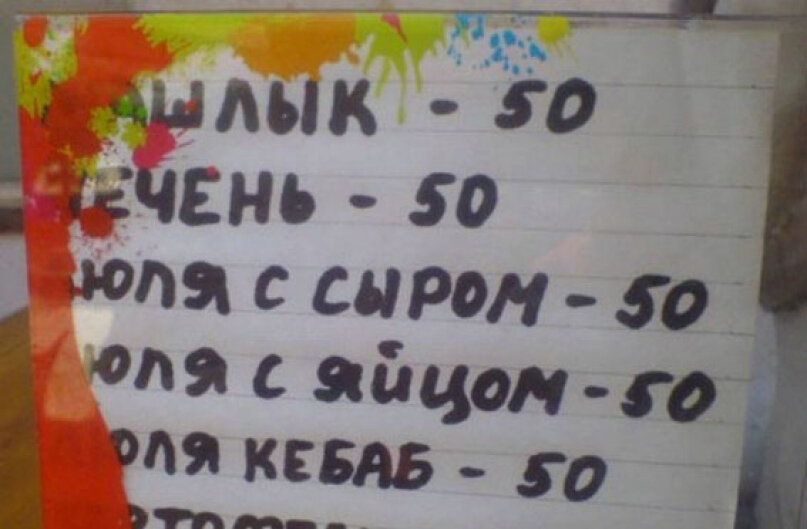 ШАШЛЫК - 50
ПЕЧЕНЬ - 50
ЛЮЛЯ С СЫРОМ - 50
ЛЮЛЯ С ЯЙЦОМ - 50
ЛЮЛЯ КЕБАБ - 50